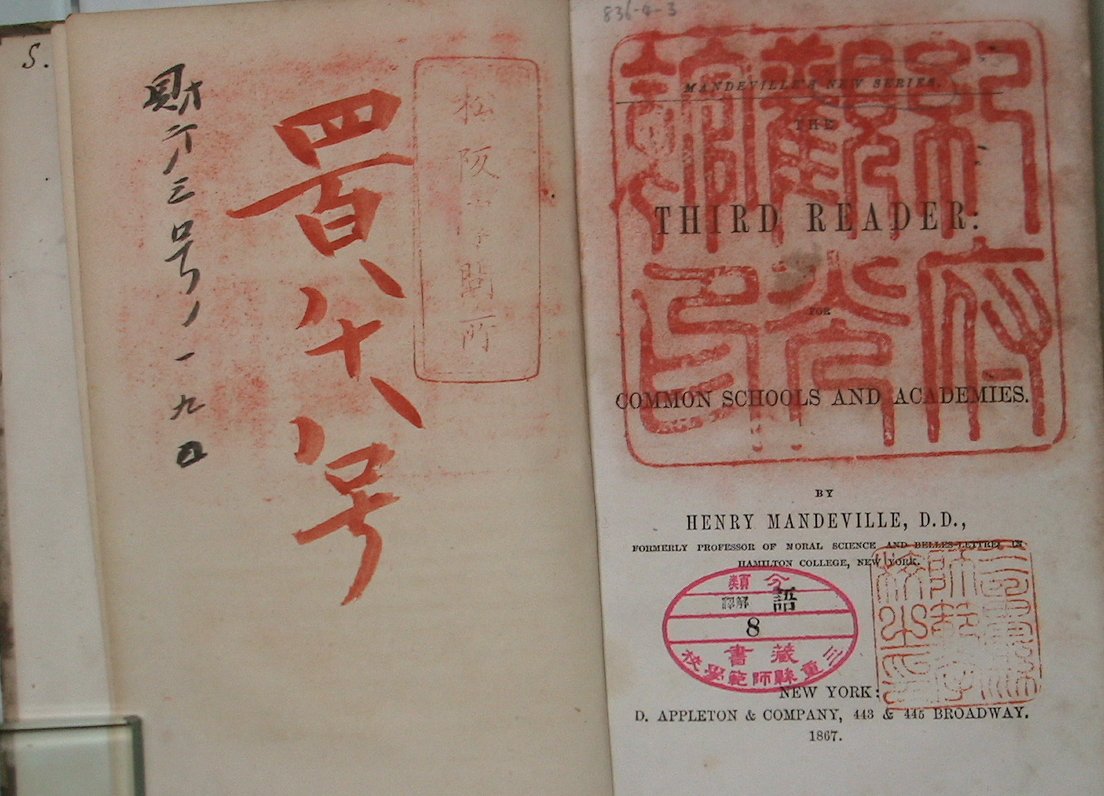 S.
財 三号ノ一九
四百八十八号
松阪 閲所
836-4-3
紀府
觀光
印
MANDEVILLE'S NEW SERIES.
THE
THIRD READER:
FOR
COMMON SCHOOLS AND ACADEMIES.
BY
HENRY MANDEVILLE, D.D.,
FORMERLY PROFESSOR OF MORAL SCIENCE AND BELLES-LETTRES IN
HAMILTON COLLEGE, NEW YORK.
分類
語 釋解
8
藏書
三重縣師範學校
三重縣
師範學
校之印
NEW YORK:
D. APPLETON & COMPANY, 443 & 445 BROADWAY.
1867.